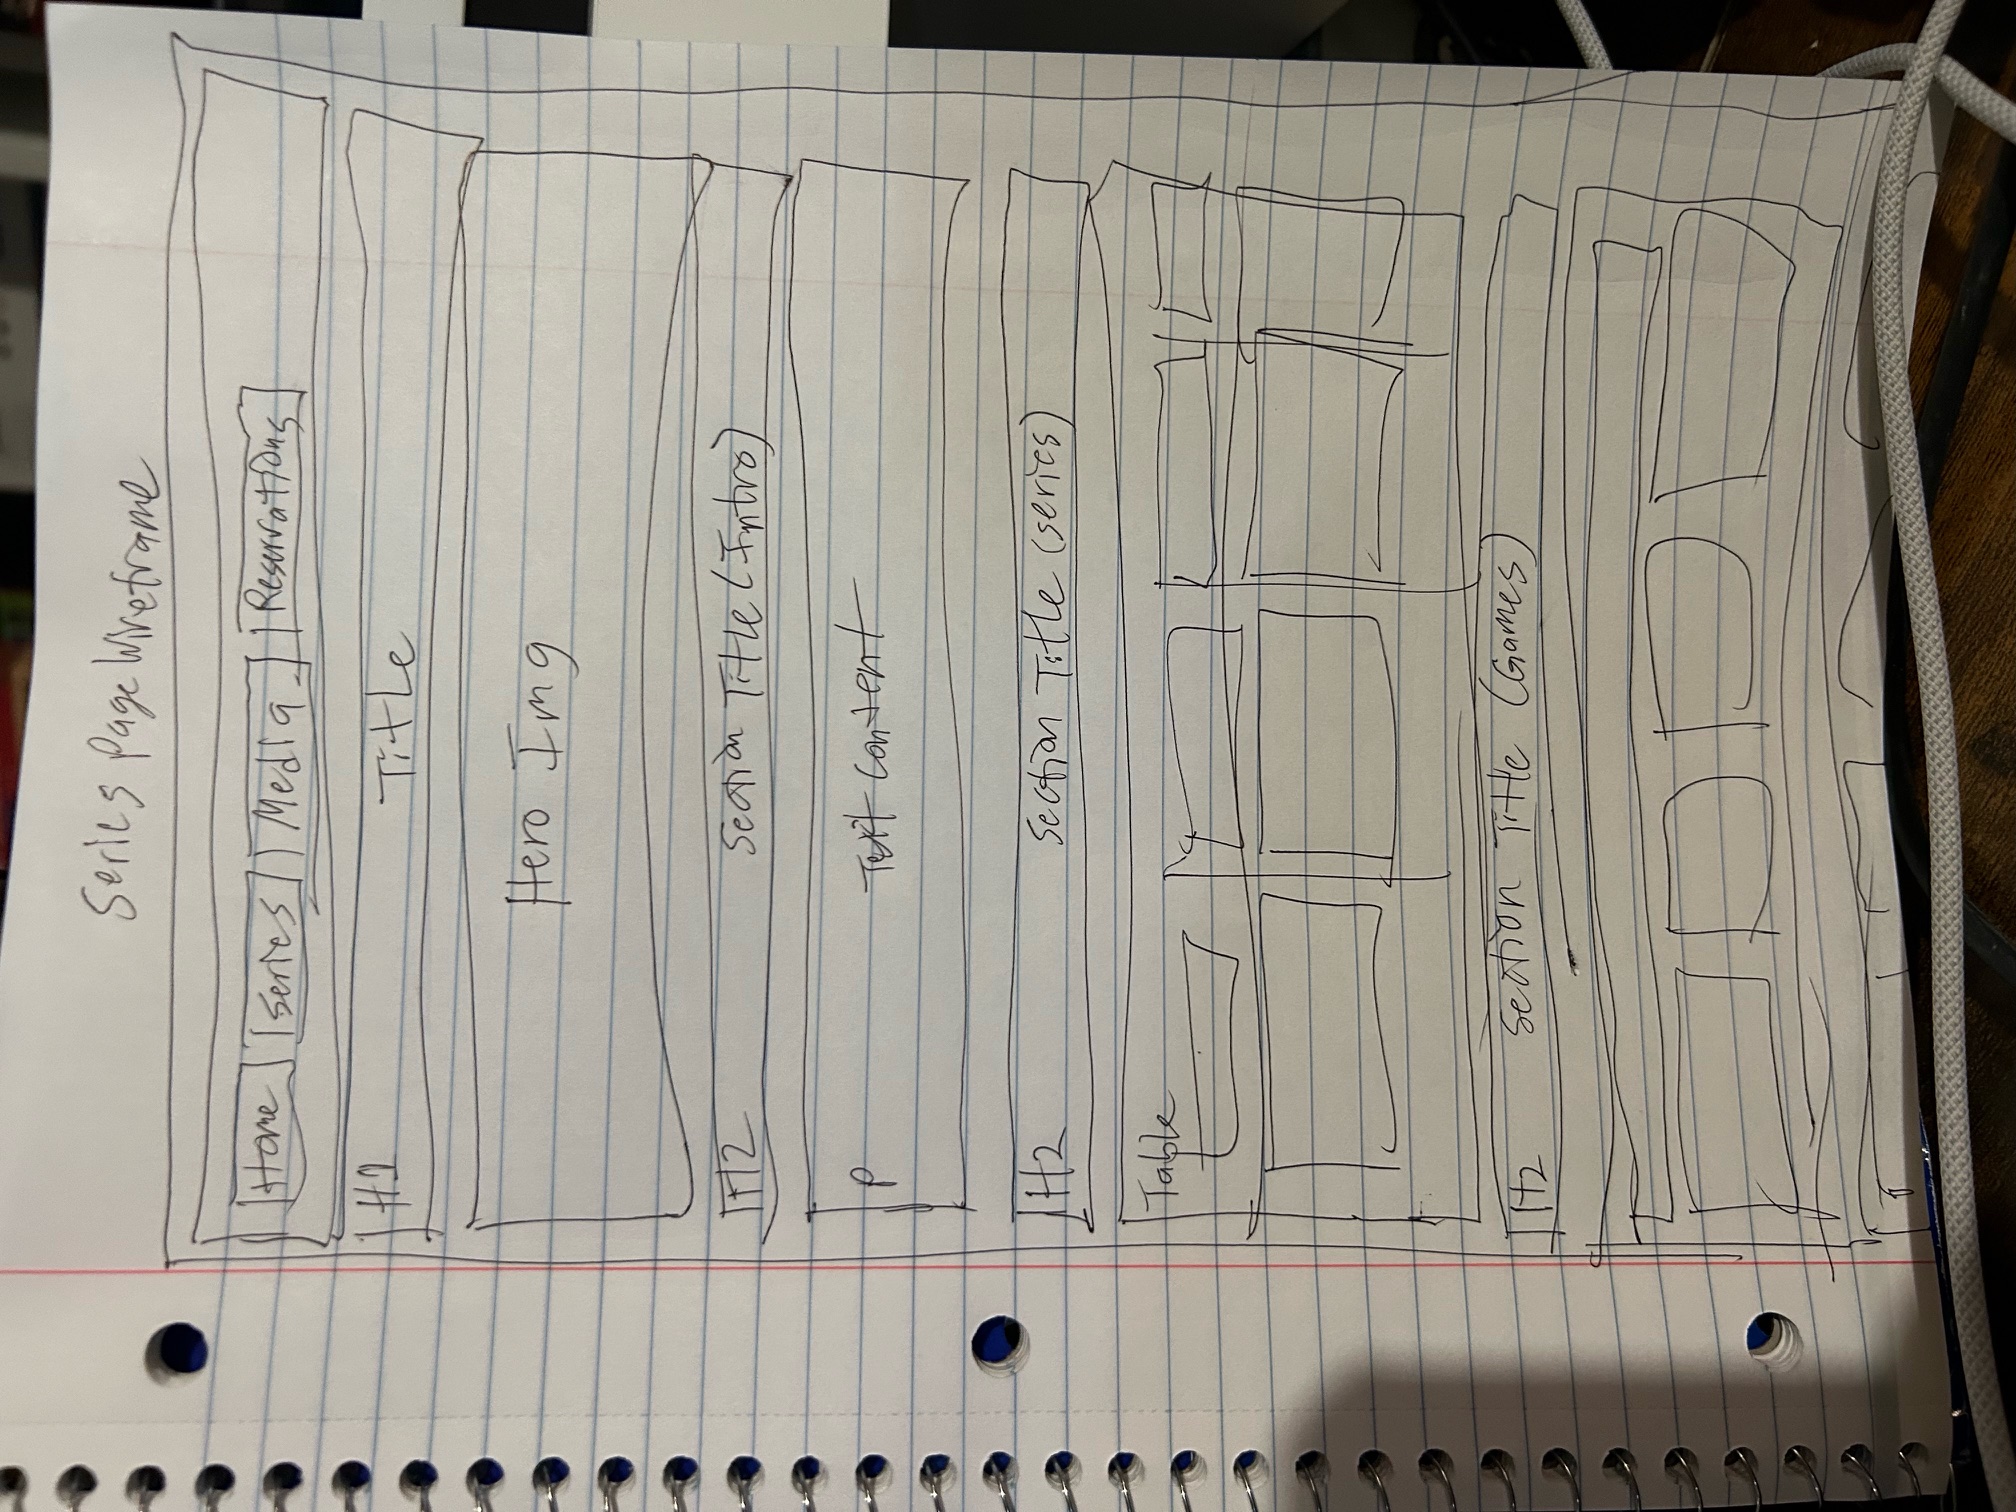 Series Page Wireframe
Home Series Media Reservations
H1 Title
Hero Img
H2 Section Title (Intro)
P Text Content
H2 Section Title (series)
Table
H2 Section Title (Games)